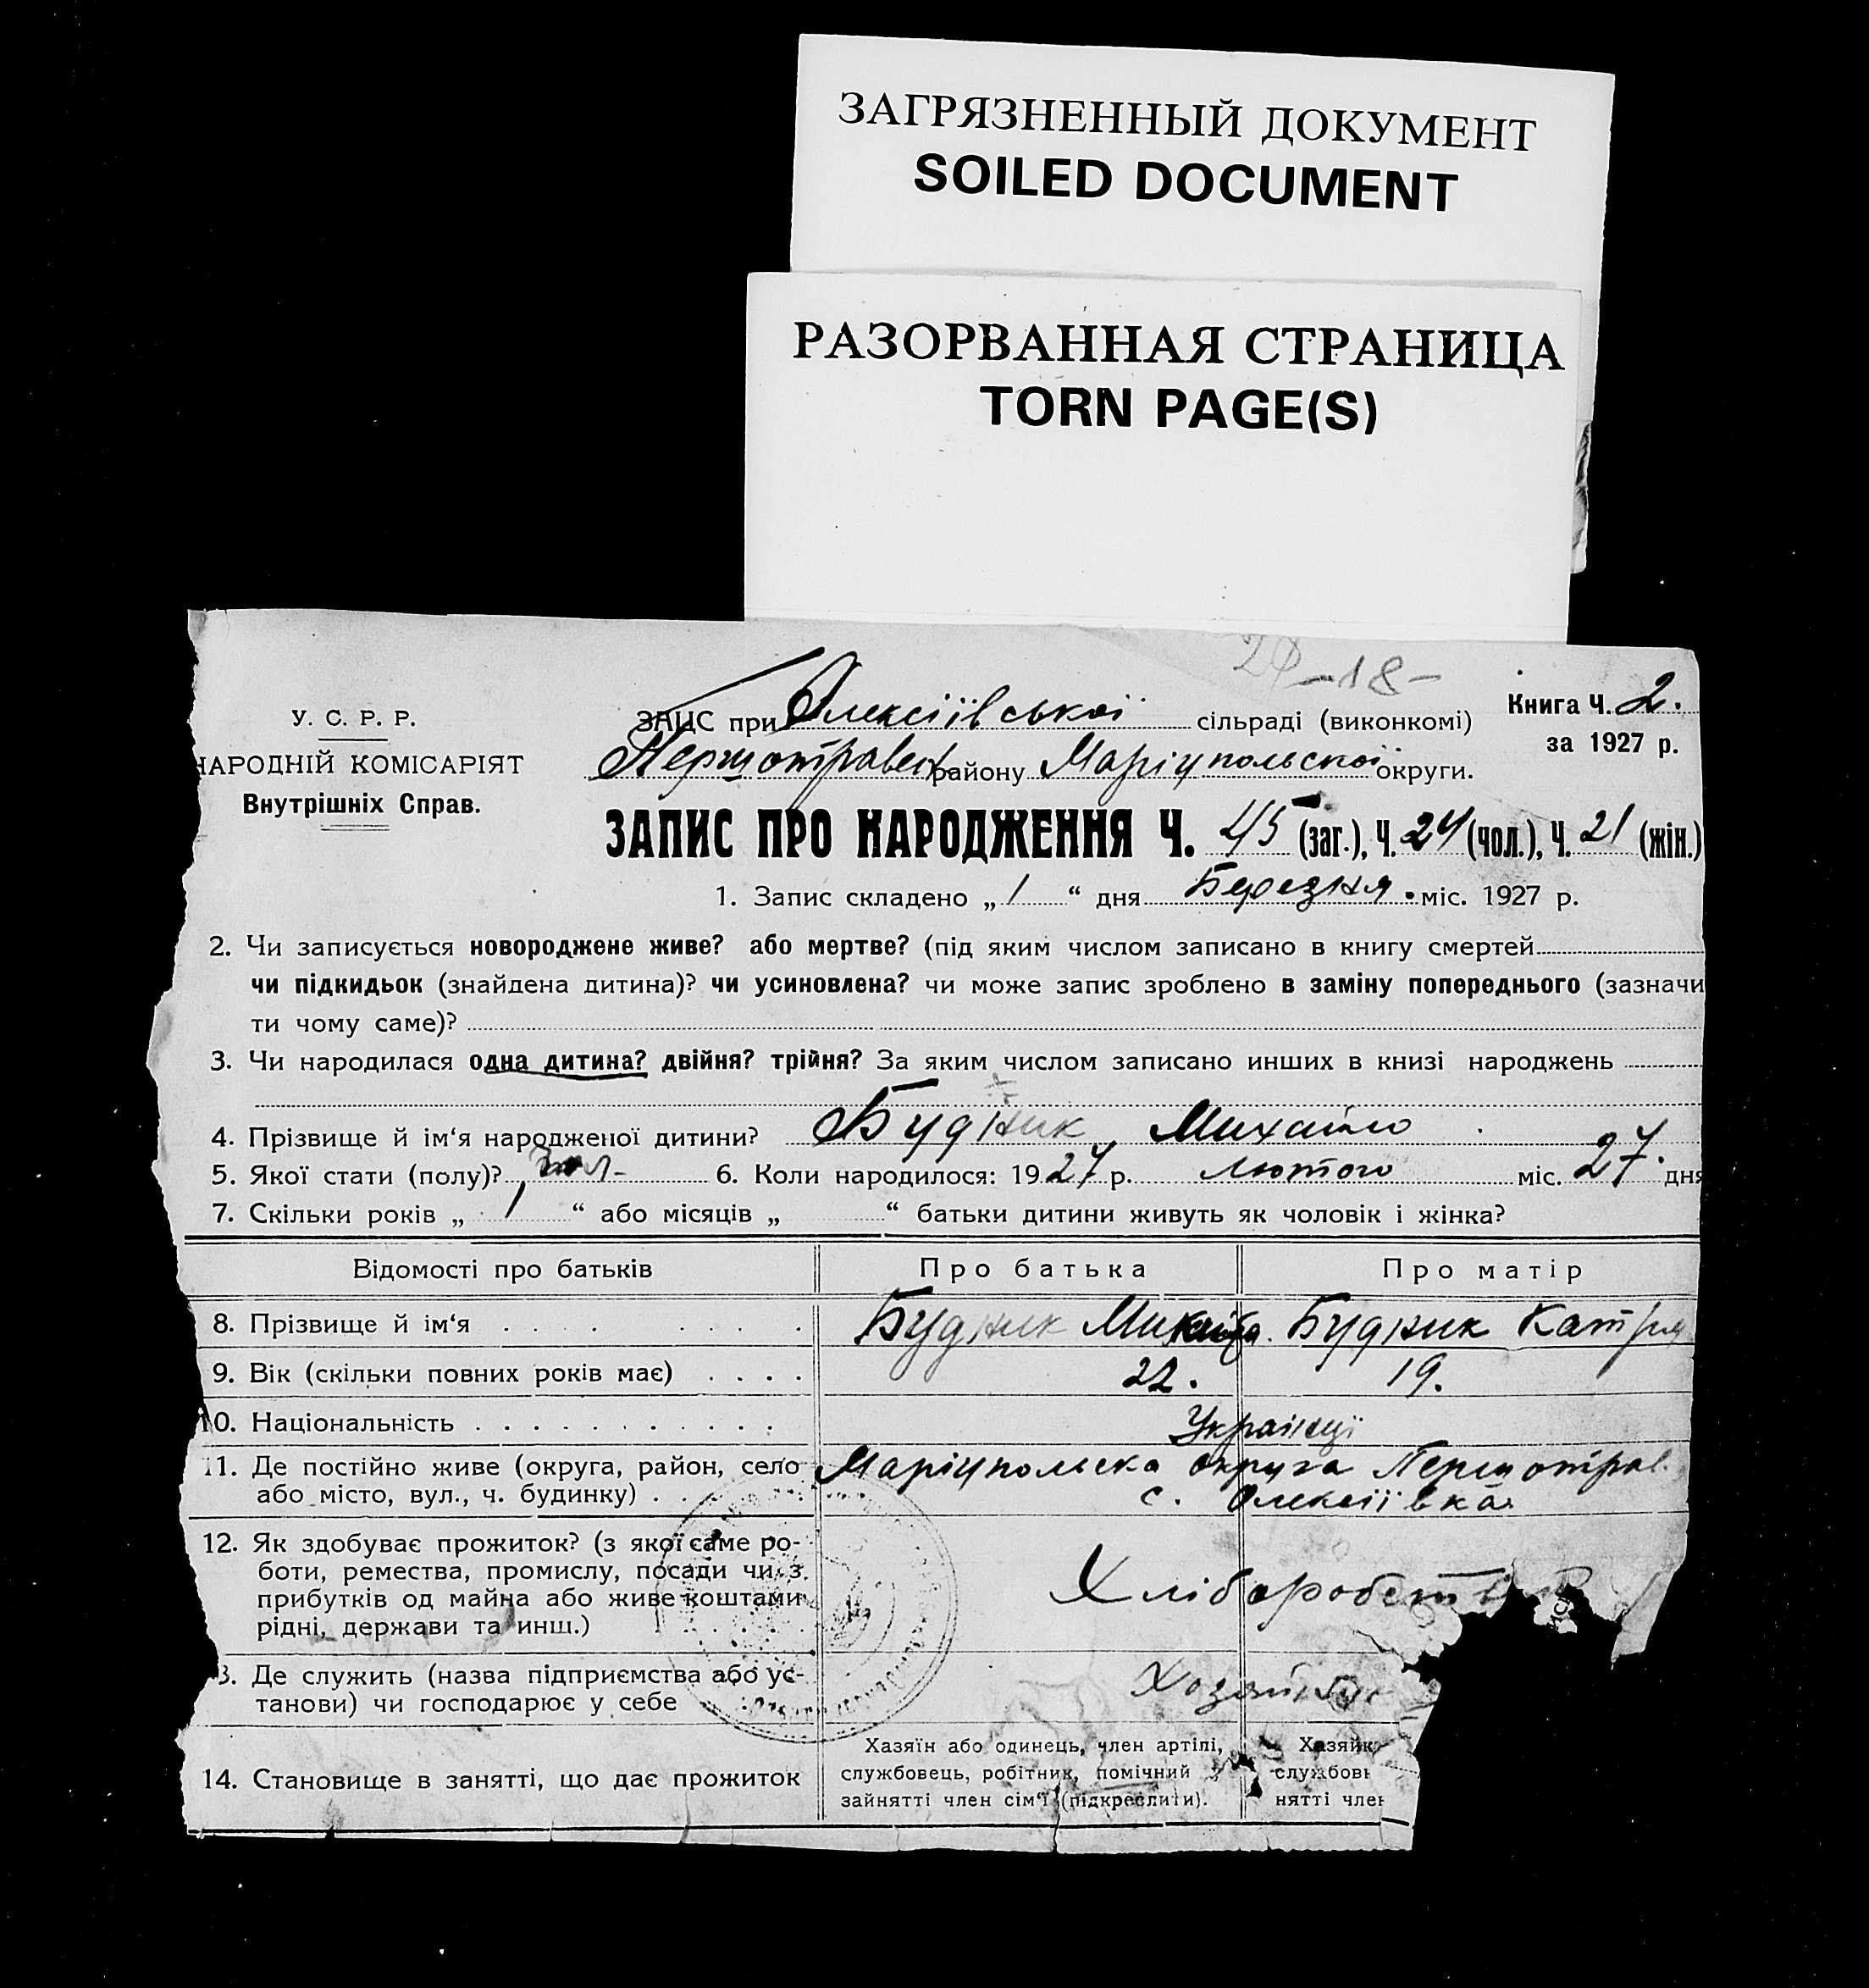 ЗАГРЯЗНЕННЫЙ ДОКУМЕНТ
SOILED DOCUMENT
РАЗОРВАННАЯ СТРАНИЦА
TORN PAGE(S)
-18-
У. С. Р. Р.
НАРОДНІЙ КОМІСАРІЯТ
Внутрішніх Справ.
ЗАЦС при Олексіївської сільраді (виконкомі)
Першотравен району Маріупольської округи.
Книга Ч. 2.
за 1927 р.
ЗАПИС ПРО НАРОДЖЕННЯ Ч. 45 (заг.), Ч. 24 (чол.), Ч. 21 (жін.)
1. Запис складено „ 1 “ дня Березня міс. 1927 р.
2. Чи записується новороджене живе? або мертве? (під яким числом записано в книгу смертей
чи підкидьок (знайдена дитина)? чи усиновлена? чи може запис зроблено в заміну попереднього (зазначи
ти чому саме)?
3. Чи народилася одна дитина? двійня? трійня? За яким числом записано инших в книзі народжень
4. Прізвище й ім‘я народженої дитини? Будник Михайло
5. Якої стати (полу)? 6. Коли народилося: 1927 р. лютого міс. 27 дня
7. Скільки років „ 1 “ або місяців „ “ батьки дитини живуть як чоловік і жінка?
Відомості про батьків Про батька Про матір
8. Прізвище й ім‘я Будник Микита Будник Катри
9. Вік (скільки повних років має) 22. 19.
10. Національність Українці
11. Де постійно живе (округа, район, село Маріупольска округа Першотрав.
або місто, вул., ч. будинку) с. Олексіївка
12. Як здобуває прожиток? (з якої саме ро-
боти, ремества, промислу, посади чи з
прибутків од майна або живе коштами
рідні, держави та инш.)
Хліборобств
13. Де служить (назва підприємства або ус-
танови) чи господарює у себе
14. Становище в занятті, що дає прожиток
Хазяїн або одинець, член артілі,
службовець, робітник, помічний у
зайнятті член сім‘ї (підкреслити).
Хазяйк
службовн
нятті член